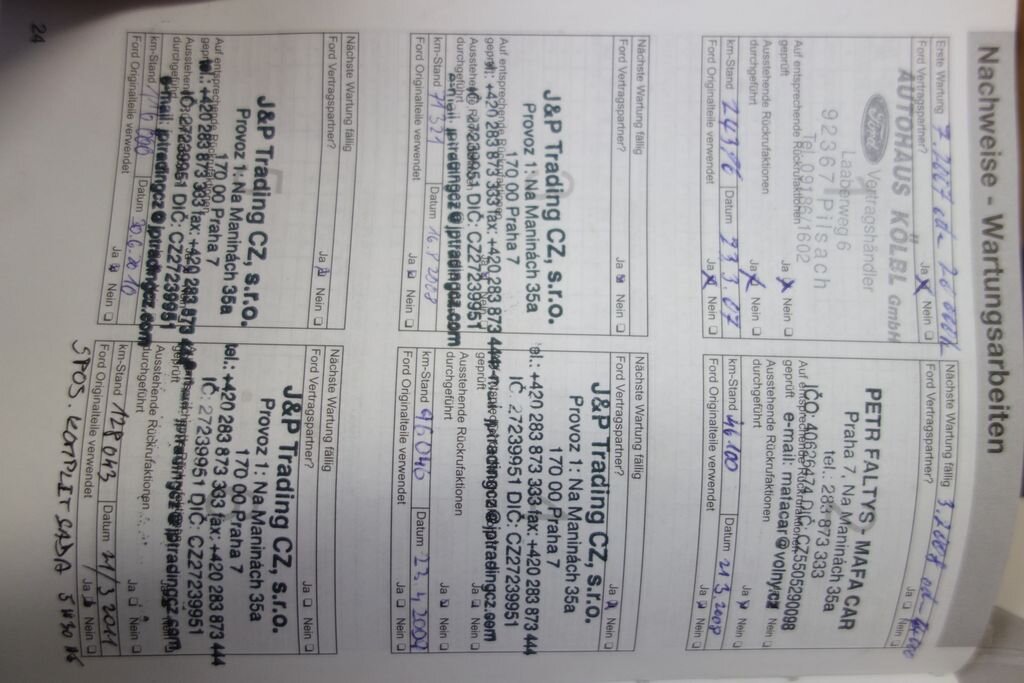 Nachweise - Wartungsarbeiten
Erste Wartung 7.2007 od.
Ford Vertragspartner? Ja Nein
AUTOHAUS KÖLBL GmbH
Ford Vertragshändler
Laaberweg 6
92367 Pilsach
Tel. 09186/1602
Auf entsprechende Rückrufaktionen
geprüft Ja Nein
Ausstehende Rückrufaktionen
durchgeführt Ja Nein
km-Stand 24376 Datum 23.3.07
Ford Originalteile verwendet Ja Nein
Nächste Wartung fällig 3.2008 od.
Ford Vertragspartner? Ja Nein
PETR FALTYS - MAFA CAR
Praha 7, Na Maninách 35a
tel.: 283 873 333
IČO: 40626474, DIČ: CZ5505290098
e-mail: matacar@volny.cz
Auf entsprechende Rückrufaktionen
geprüft Ja Nein
Ausstehende Rückrufaktionen
durchgeführt Ja Nein
km-Stand 46 100 Datum 21 3. 2008
Ford Originalteile verwendet Ja Nein
Nächste Wartung fällig
Ford Vertragspartner? Ja Nein
J&P Trading CZ, s.r.o.
Provoz 1: Na Maninách 35a
170 00 Praha 7
tel.: +420 283 873 333 fax: +420 283 873 444
IČ: 27239951 DIČ: CZ27239951
e-mail: jptradingcz@jptradingcz.com
Auf entsprechende Rückrufaktionen
geprüft
Ausstehende Rückrufaktionen
durchgeführt
km-Stand 71 321 Datum 16.8 2008
Ford Originalteile verwendet Ja Nein
Nächste Wartung fällig
Ford Vertragspartner? Ja Nein
J&P Trading CZ, s.r.o.
Provoz 1: Na Maninách 35a
170 00 Praha 7
tel.: +420 283 873 333 fax: +420 283 873 444
IČ: 27239951 DIČ: CZ27239951
e-mail: jptradingcz@jptradingcz.com
geprüft Ja Nein
Ausstehende Rückrufaktionen
durchgeführt Ja Nein
km-Stand 96.040 Datum 22, 4, 2009
Ford Originalteile verwendet Ja Nein
Nächste Wartung fällig
Ford Vertragspartner? Ja Nein
J&P Trading CZ, s.r.o.
Provoz 1: Na Maninách 35a
170 00 Praha 7
tel.: +420 283 873 333 fax: +420 283 873 444
IČ: 27239951 DIČ: CZ27239951
e-mail: jptradingcz@jptradingcz.com
Auf entsprechende Rückrufaktionen
geprüft
Ausstehende Rückrufaktionen
durchgeführt
km-Stand Datum 30.6.2010
Ford Originalteile verwendet Ja Nein
Nächste Wartung fällig
Ford Vertragspartner? Ja Nein
J&P Trading CZ, s.r.o.
Provoz 1: Na Maninách 35a
170 00 Praha 7
tel.: +420 283 873 333 fax: +420 283 873 444
IČ: 27239951 DIČ: CZ27239951
e-mail: jptradingcz@jptradingcz.com
geprüft
Ausstehende Rückrufaktionen
durchgeführt Ja Nein
km-Stand 128 043 Datum 21/3 2011
Ford Originalteile verwendet Ja Nein
24